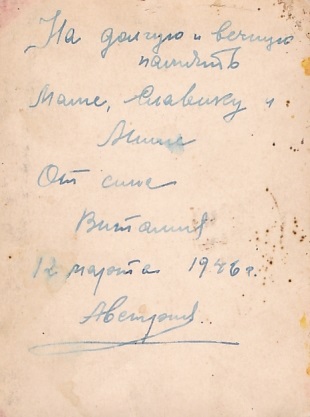 „На долгую и вечную
память
Маме, Славику и
Анине
От сына
Виталия
12 марта 1946 г.
Австрия.